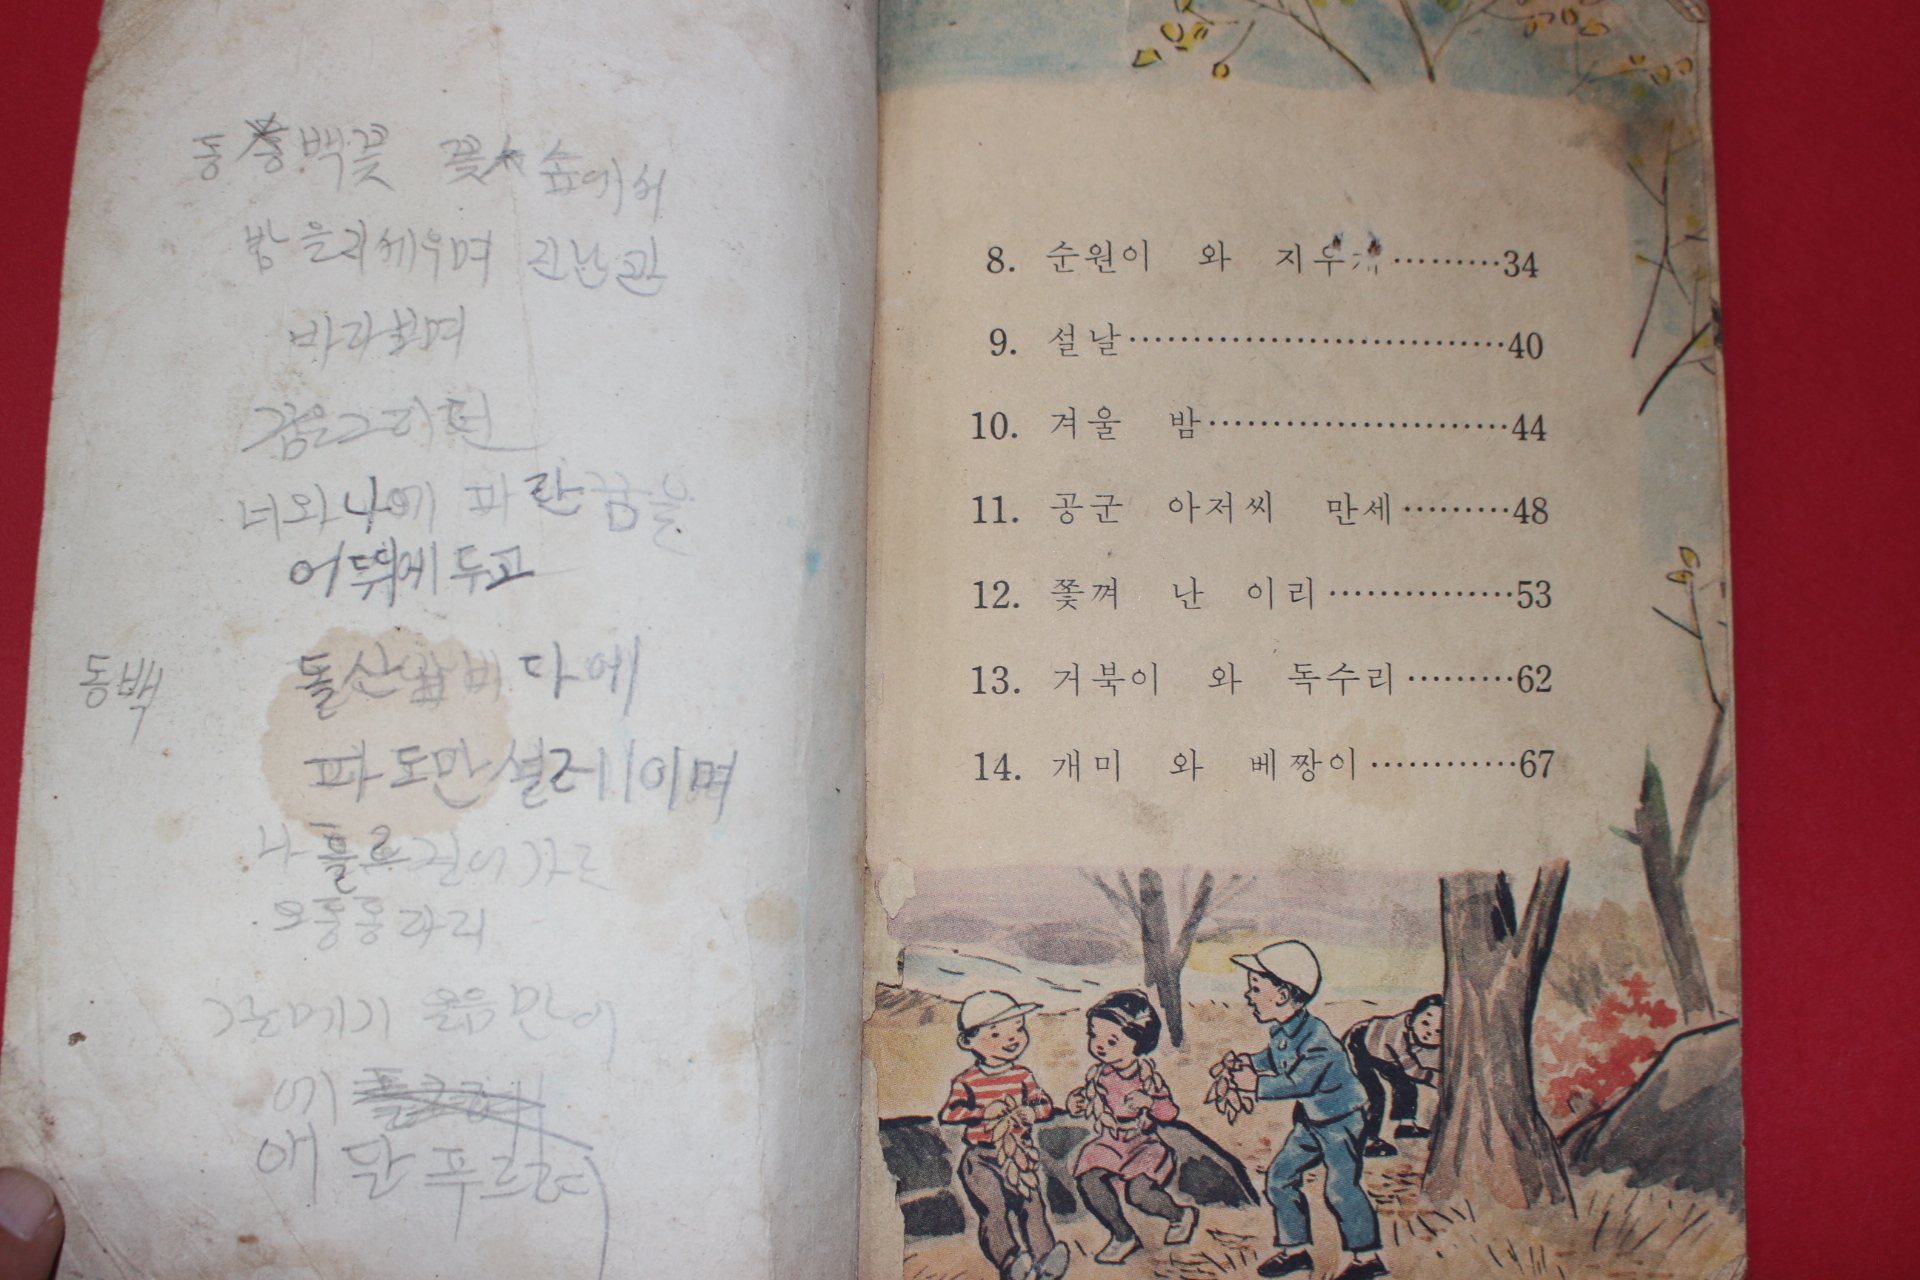 동백꽃 꽃 숲에서
밤을 지세우며 진난 관
바라보며
꿈은 그리현
너와 나에 파란 꿈을
어뒤에 두고
동백
돌산 앞바다에
파도만 설레이며
나 홀로 걸어가는
오동동라리
갈메기 울음만이
에
애달푸르려
8. 순원이 와 지우개·········34
9. 설날······························40
10. 겨울 밤························44
11. 공군 아저씨 만세·········48
12. 쫓겨 난 이리···············53
13. 거북이 와 독수리·········62
14. 개미 와 베짱이············67